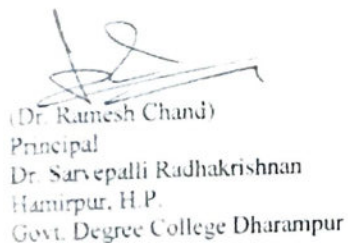 (Dr. Ramesh Chand)
Principal
Dr. Sarvepalli Radhakrishnan
Hamirpur, H.P.
Govt. Degree College Dharampur